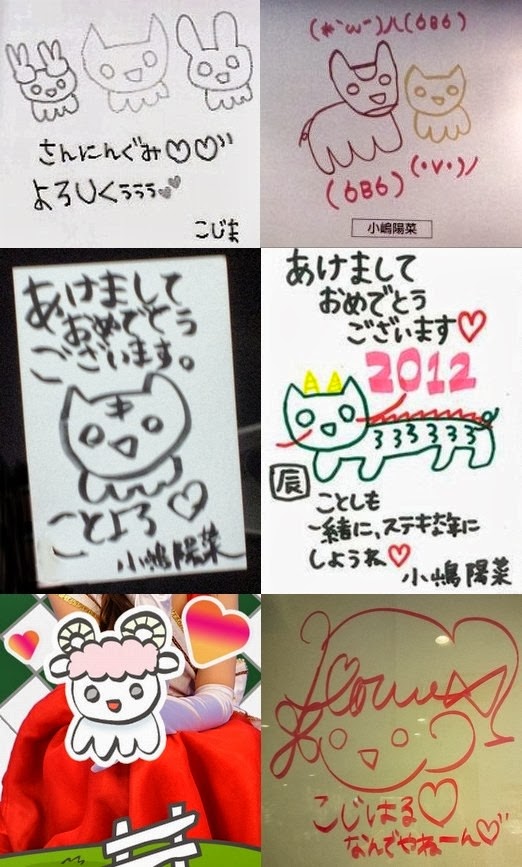 さんにんぐみ♡♡"
よろしくぅぅぅ♥♥
こじま
(*´ω`)八(6B6)
(6B6)
(・V・)ノ
小嶋陽菜
あけまして
おめでとう
ございます。
ことよろ♡
小嶋陽菜
あけまして
おめでとう
ございます♡
2012
辰
ことしも
一緒に、ステキな年に
しようね♡
小嶋陽菜
こじはる♡
なんでやねーん♡"